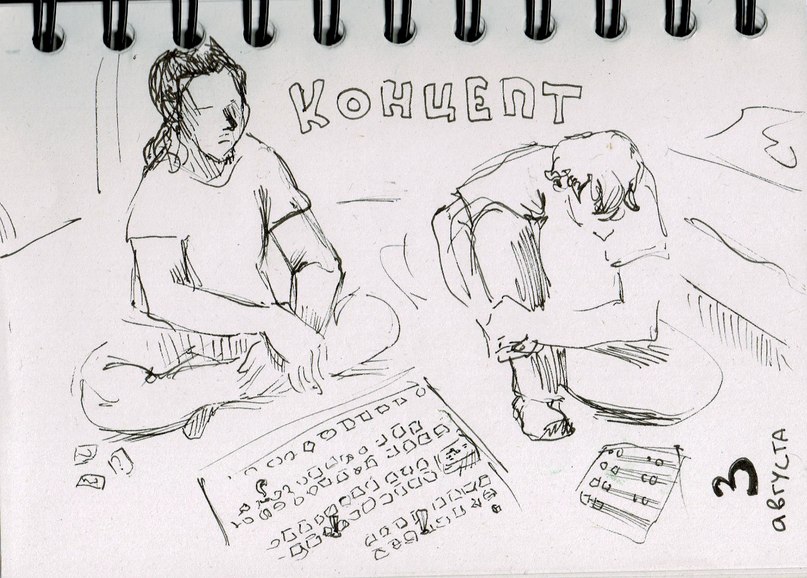 КОНЦЕПТ
3
августа